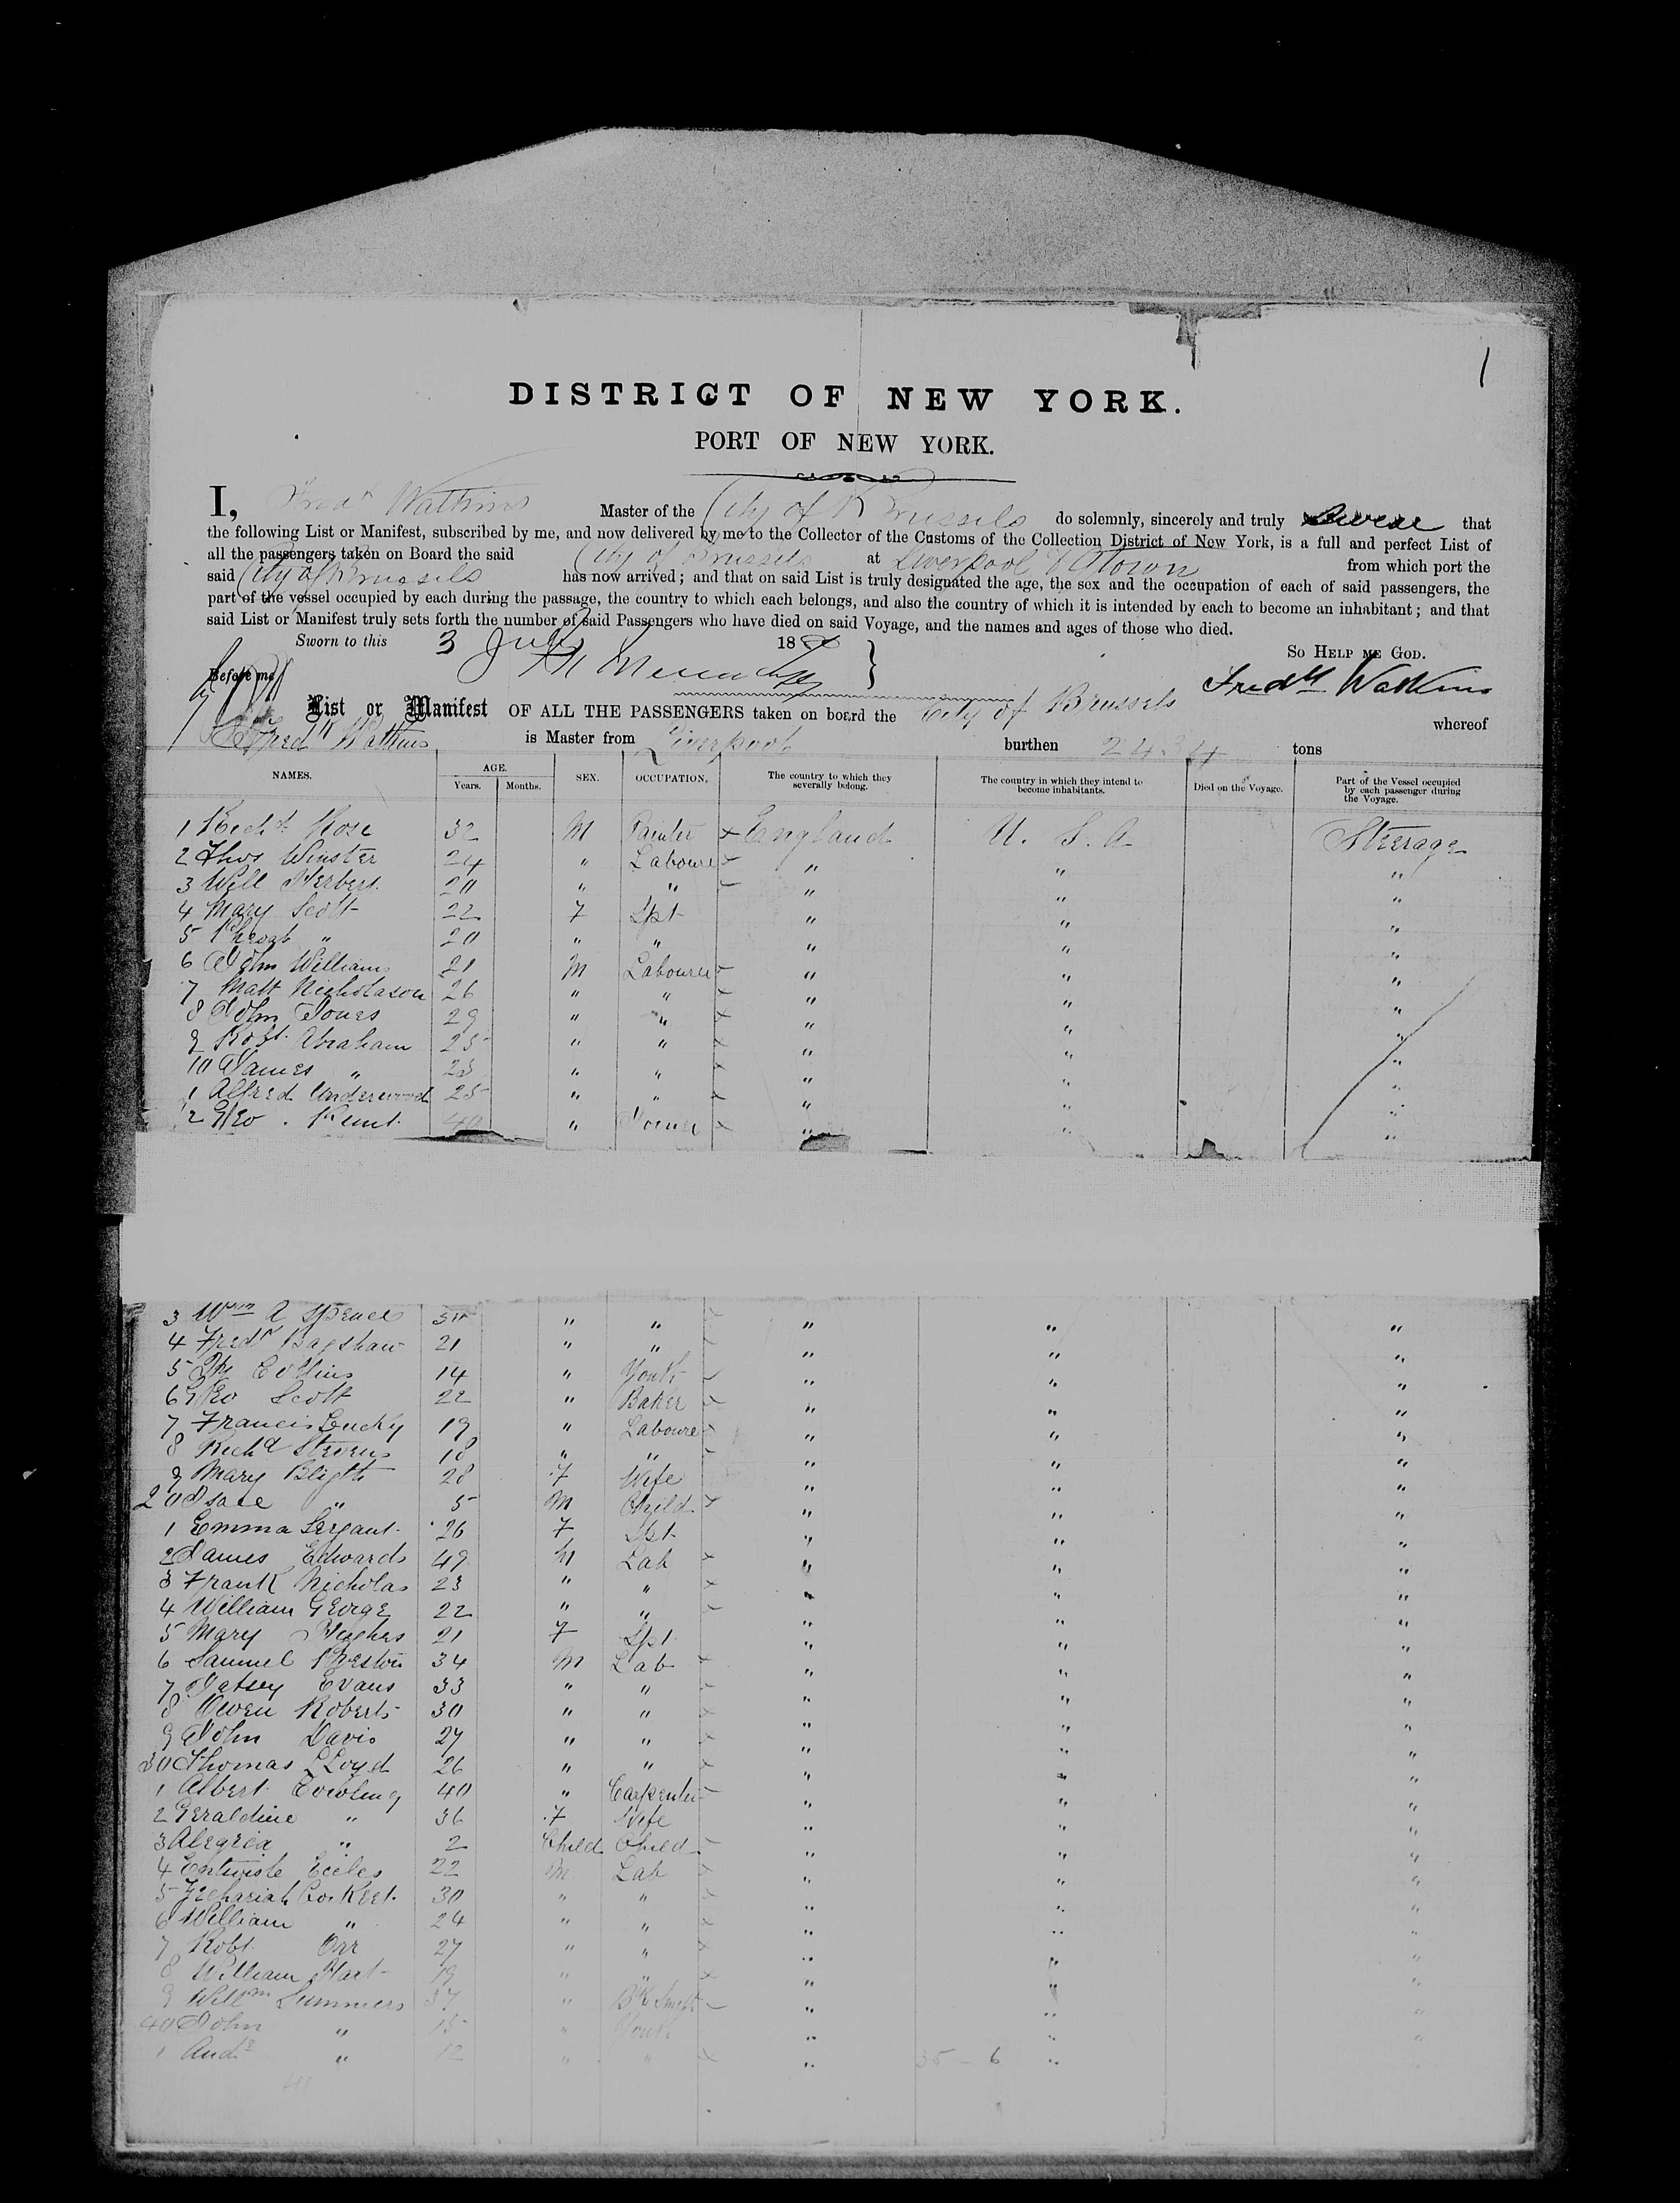 1
DISTRICT OF NEW YORK.
PORT OF NEW YORK.
I, Fredk Watkins Master of the City of Brussels do solemnly, sincerely and truly Swear that
the following List or Manifest, subscribed by me, and now delivered by me to the Collector of the Customs of the Collection District of New York, is a full and perfect List of
all the passengers taken on Board the said City of Brussels at Liverpool & Qtown from which port the
said City of Brussels has now arrived; and that on said List is truly designated the age, the sex and the occupation of each of said passengers, the
part of the vessel occupied by each during the passage, the country to which each belongs, and also the country of which it is intended by each to become an inhabitant; and that
said List or Manifest truly sets forth the number of said Passengers who have died on said Voyage, and the names and ages of those who died.
Sworn to this 3 July 18 So Help me God.
Before me Fredk Watkins
List or Manifest OF ALL THE PASSENGERS taken on board the City of Brussels whereof
Fredk Watkins is Master from Liverpool burthen 2434 tons
NAMES. AGE. Years. Months. SEX. OCCUPATION. The country to which they severally belong. The country in which they intend to become inhabitants. Died on the Voyage. Part of the Vessel occupied by each passenger during the Voyage.
1 Richd Rose 32 M Painter England U. S. A Steerage
2 Thos Winster 24 " Laboure " " "
3 Will Herbert 20 " " " " "
4 Mary Scott 22 F Spt " " "
5 " 20 " " " " "
6 John Williams 21 M Labourer " " "
7 Matt Nicholason 26 " " " " "
8 John Jones 29 " " " " "
9 Robt. Abraham 25 " " " " "
10 James " 23 " " " " "
1 Alfred Underwood 25 " " " " "
2 Geo. Kent 40 " Joiner " " "
3 Wm A Spence " " " " "
4 Fredk Bagshaw 21 " " " " "
5 Collins 14 " Youth " " "
6 Geo Scott 22 " Baker " " "
7 Francis Luchy 19 " Laboure " " "
8 Richd Stevens 18 " " " " "
9 Mary Bligth 28 F Wife " " "
20 Isace " 5 M Child " " "
1 Emma Sergant 26 F Spt " " "
2 James Edwards 49 M Lab " " "
3 Frank Nicholas 23 " " " " "
4 William George 22 " " " " "
5 Mary Hughes 21 F Spt " " "
6 Samuel Preston 34 M Lab " " "
7 Patsey Evans 33 " " " " "
8 Owen Roberts 30 " " " " "
9 John Davis 27 " " " " "
30 Thomas LLoyd 26 " " " " "
1 Albert Cowling 40 " Carpenter " " "
2 Geraldine " 36 F Wife " " "
3 Alegrea " 2 Child Child " " "
4 Entwisle Eccles 22 M Lab " " "
5 Zechariah Corkeet 30 " " " " "
6 William " 24 " " " " "
7 Robt. Orr 27 " " " " "
8 William Hart 19 " " " " "
9 Willm Summers 37 " Bk Smith " " "
40 John " 15 " Youth " " "
1 Andw " 12 " " " 35 - 6 "
41